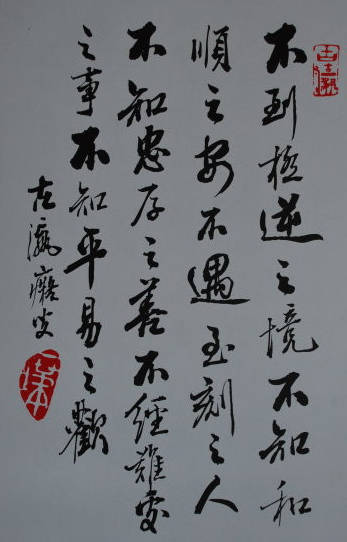 不到極逆之境不知和
順之安不遇至刻之人
不知忠厚之善不經難處
之事不知平易之歡
古瀛